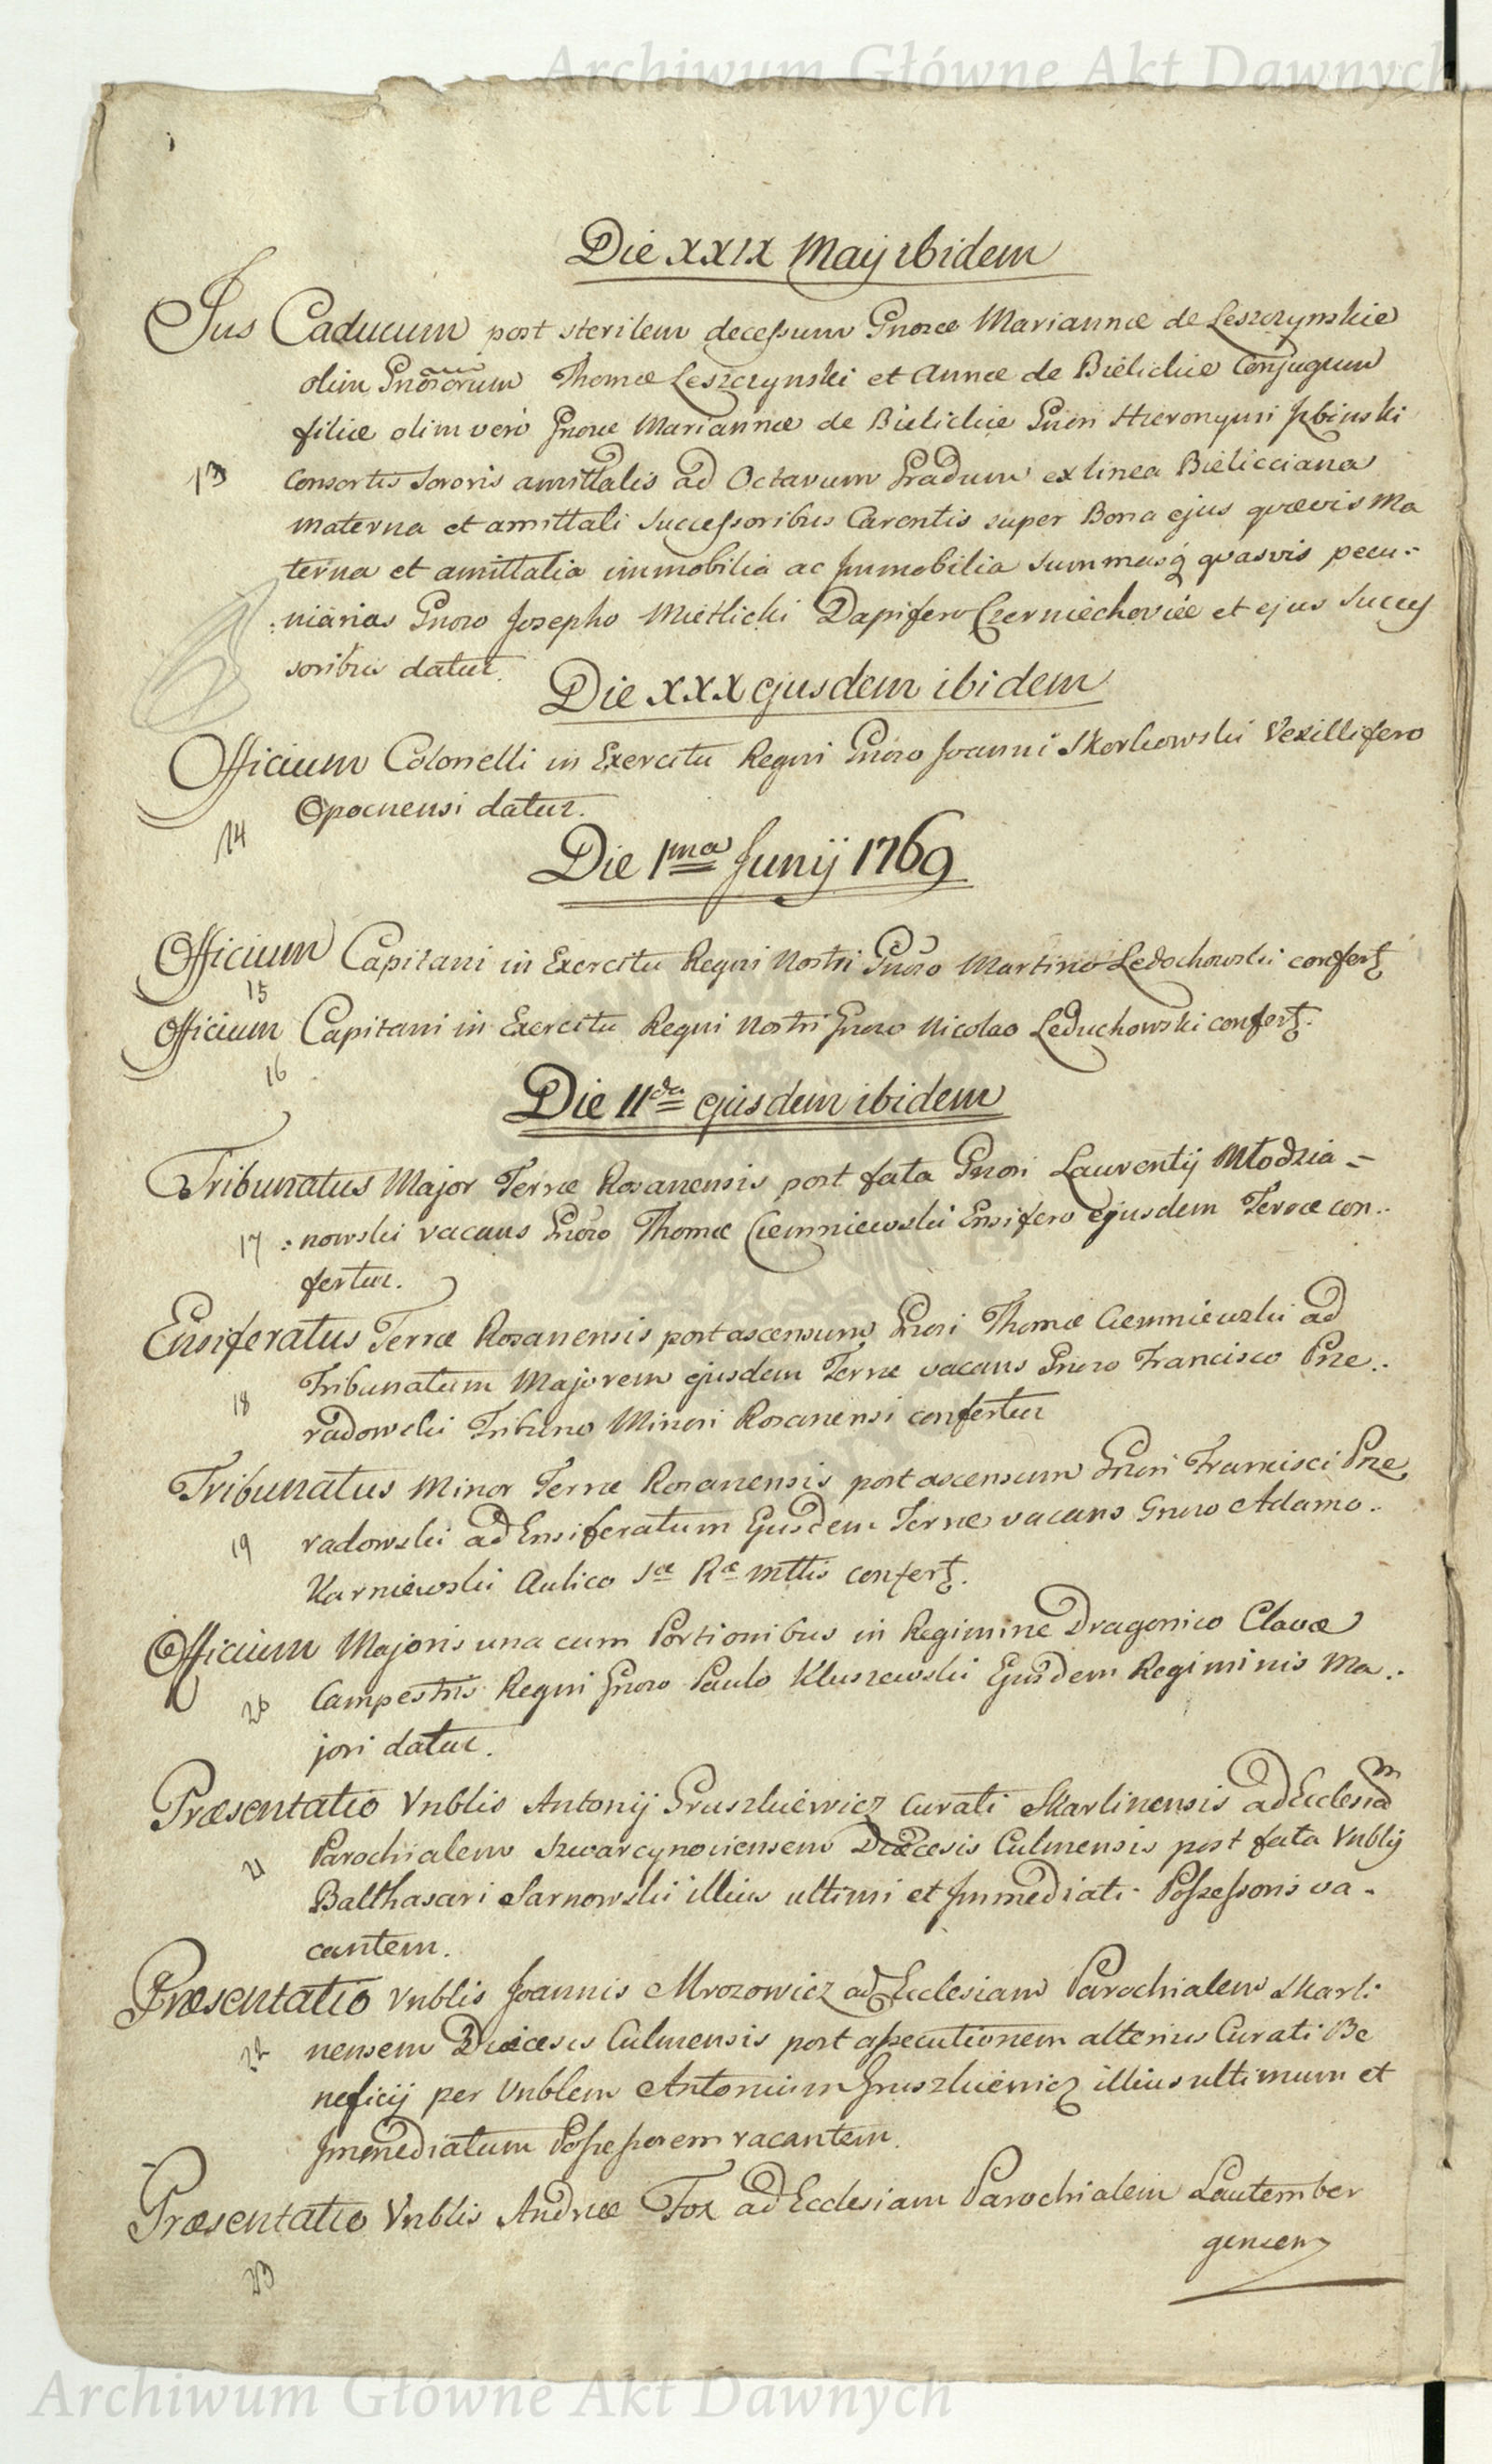 Archiwum Główne Akt Dawnych
Die XXIX Maij ibidem
Jus Caducum post sterilem decessum Gnosae Mariannae de Leszczynskie
olim Gnosorum Thomae Leszczynski et Annae de Bielickie Conjugum
filiae olim verò Gnosae Mariannae de Bielickie Gnosi Hieronymi
13 Consortis Sororis amittalis ad Octavum Gradum ex linea Bielicciana
materna et amittali Successoribus Carentis super Bona ejus quaevis Ma
terna et amittalia immobilia ac Immobilia Summasq quasvis pecu-
:niarias Gnoso Josepho Mietlicki Dapifero Czerniechoviée et ejus Succes
soribus datur.
Die XXX ejusdem ibidem
Officium Colonelli in Exercitu Regni Gnoso Joanni Skorkowski Vexillifero
Opocnensi datur.
14
Die 1ma Junij 1769
Officium Capitani in Exercitu Regni Nostri Gnoso Martino Ledochowski confert
15
Officium Capitani in Exercitu Regni Nostri Gnoso Nicolao Leduchowski confert.
16
Die 11da ejusdem ibidem
Tribunatus Major Terrae Rosanensis post fata Gnosi Laurentij Młodzia =
17 : nowski vacans Gnoso Thomae Ciemniewski Ensifero ejusdem Terrae con..
fertur.
Ensiferatus Terrae Rosanensis post ascensum Gnosi Thomae Ciemniewski ad
18 Tribunatum Majorem ejusdem Terrae vacans Gnoso Francisco Prze..
radowski Tribuno Minori Rosanensi confertur
Tribunatus Minor Terrae Rosanensis post ascensum Gnosi Francisci Prze
19 radowski ad Ensiferatum Ejusdem Terrae vacans Gnoso Adamo..
Karniewski Aulico Sae Rae Mttis confert.
Officium Majoris una cum Portionibus in Regimine Dragonico Clavae
20 Campestris Regni Gnoso Paulo Kluszewski Ejusdem Regiminis Ma..
jori datur.
Praesentatio Vnblis Antonij Gruszkiewicz Curati Skarlinensis ad Ecclesiam
21 Parochialem Szwarcynoviensem Diaecesis Culmensis post fata Vnblis
Balthasari Sarnowski illius ultimi et Immediati Possessoris va-
cantem.
Praesentatio Vnblis Joannis Mrozowicz ad Ecclesiam Parochialem Skarli
22 nensem Diaecesis Culmensis post assecutionem alterius Curati Be
neficij per Vnblem Antonium Gruszkiewicz illius ultimum et
Immediatum Possessorem vacantem.
Praesentatio Vnblis Andreae Fox ad Ecclesiam Parochialem Lautember
gensem
23
Archiwum Główne Akt Dawnych